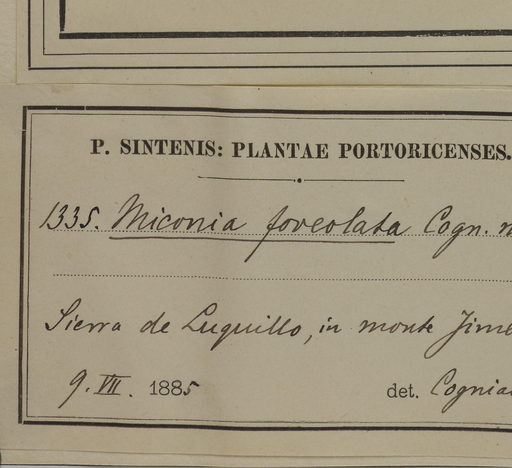 P. SINTENIS: PLANTAE PORTORICENSES.
1335. Miconia foveolata Cogn. n
Sierra de Luquillo, in monte Jime
9. VII. 1885 det. Cognia